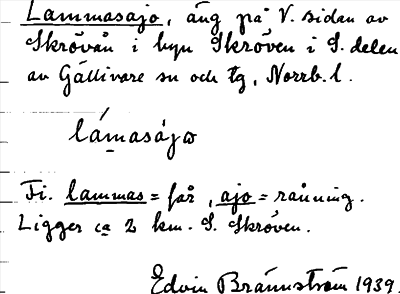 Lammasajo, äng på V. sidan av
Skrövån i byn Skröven i S. delen
av Gällivare sn och tg, Norrb. l.
lámasájω
Fi. lammas = får, ajo = rånning.
Ligger ca 2 km. S. Skröven.
Edvin Brännström 1939.